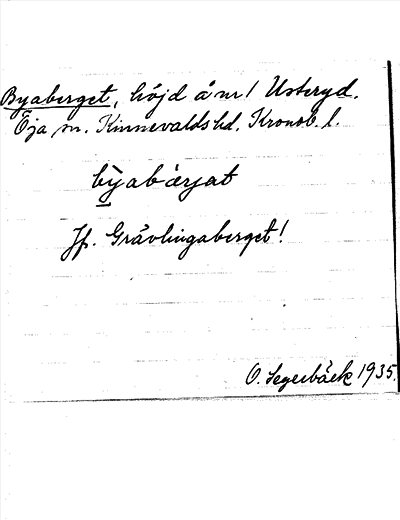 Byaberget, höjd å nr 1 Usteryd.
Öja sn. Kinnevalds hd. Kronob. l.
bỳabærjat
Jfr. Grävlingaberget!
O. Segerbäck 1935.